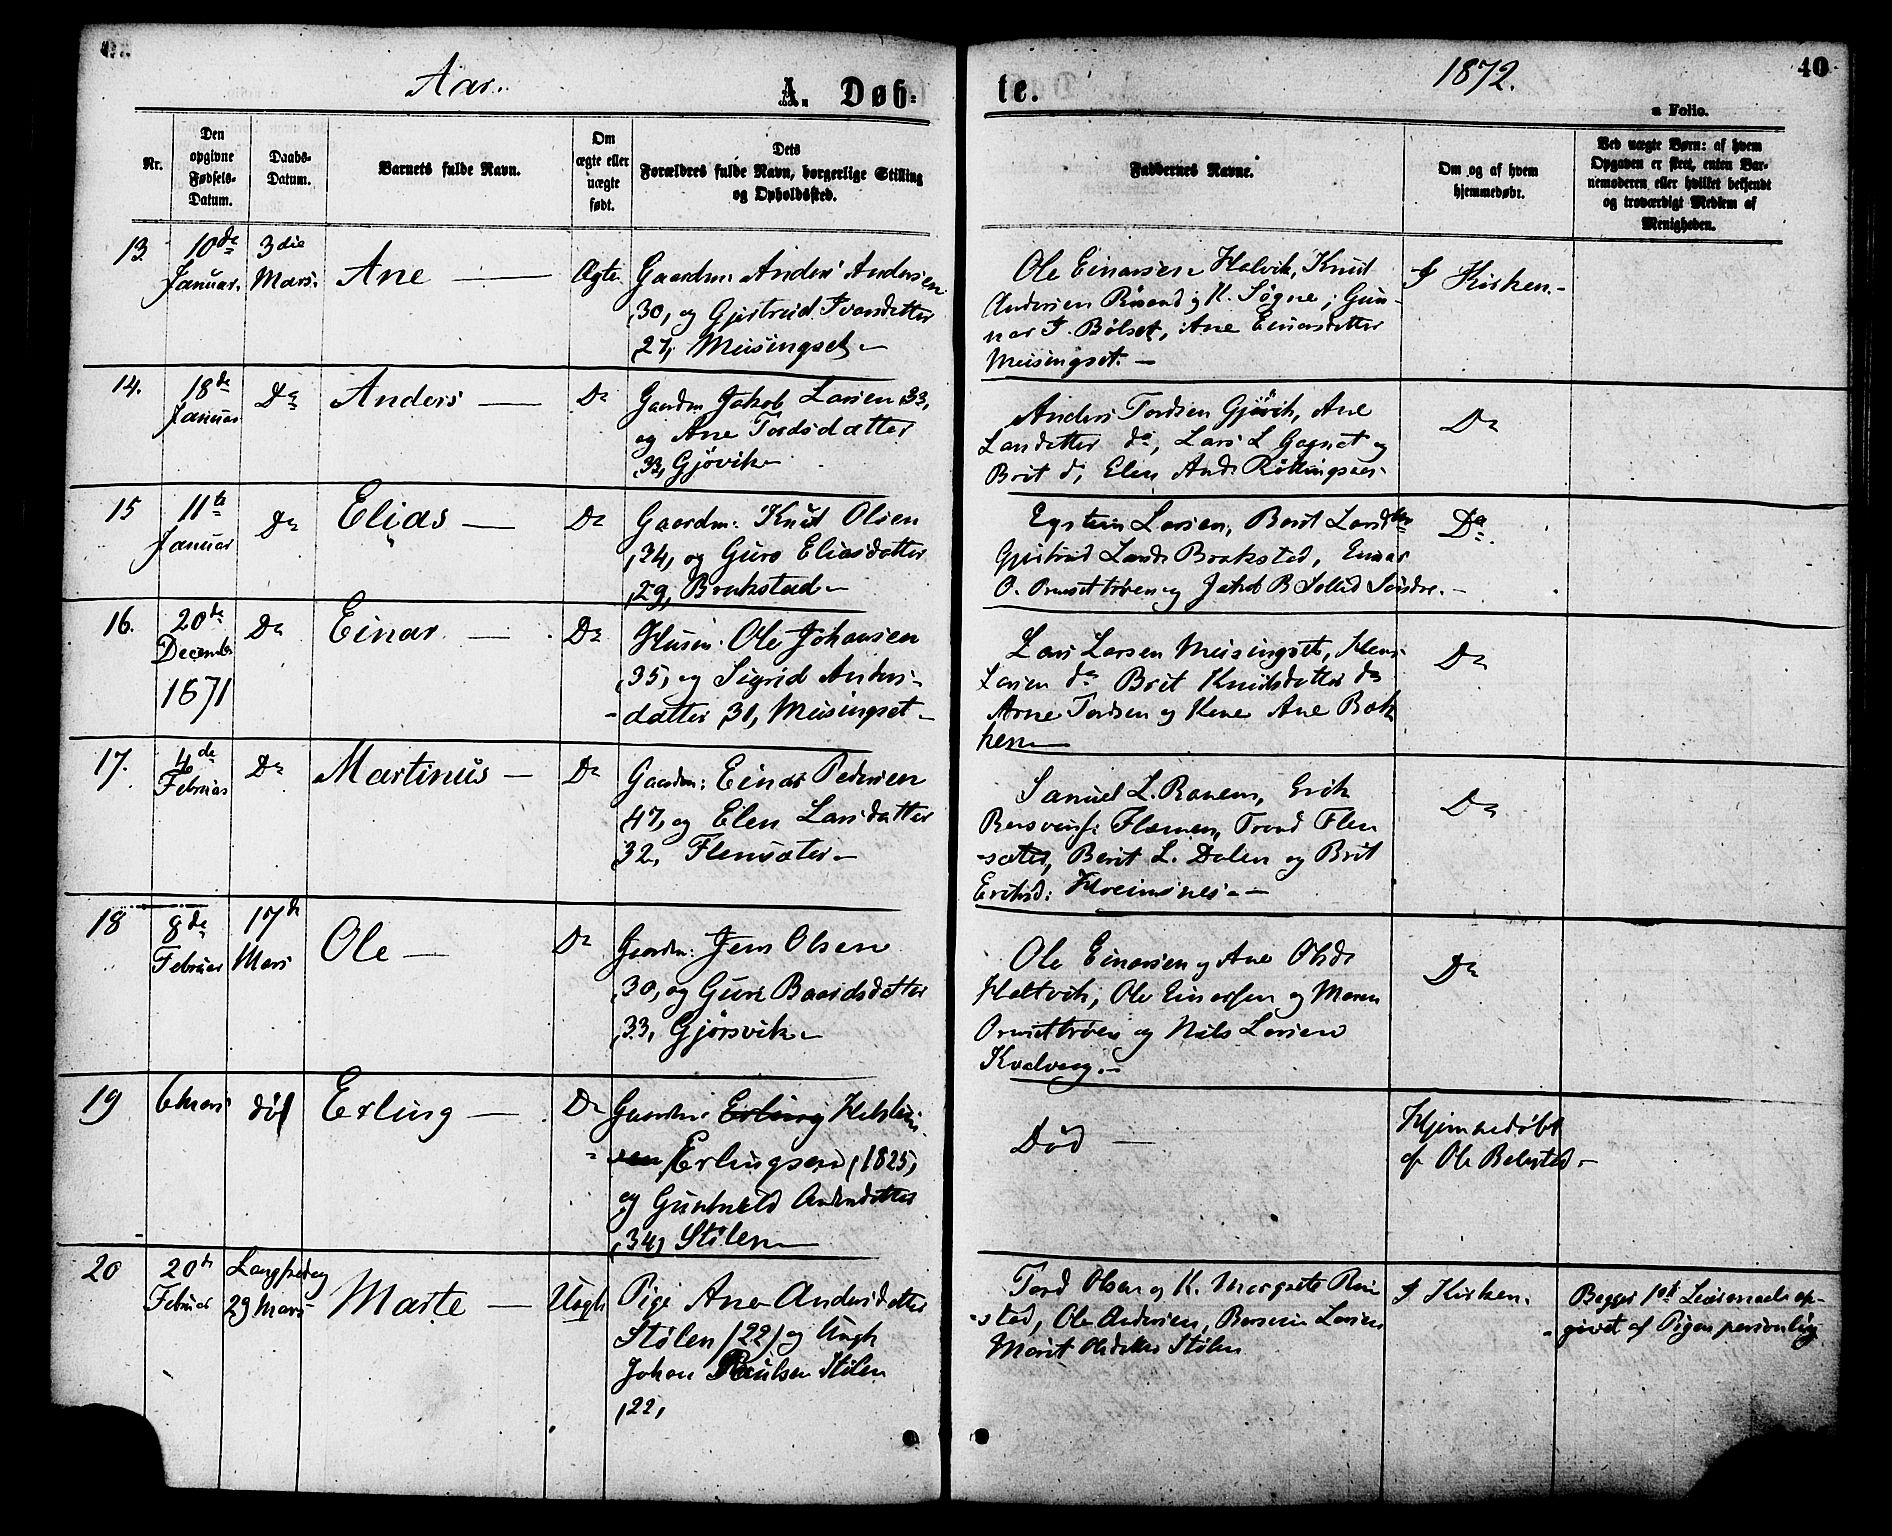 Aar.
A. Døb-
te.
1872.
40
a Folio.
Nr.
Den opgivne Fødsels-Datum.
Daabs-Datum.
Barnets fulde Navn.
Om ægte eller uægte født.
Dets Forældres fulde Navn, borgerlige Stilling og Opholdssted.
Faddernes Navne.
Om og af hvem hjemmedøbt.
Ved uægte Børn: af hvem Opgaven er skeet, enten Barnemoderen eller hvilket bekjendt og troværdigt Medlem af Menigheden.
13. 10de Januar. 3die Mars. Ane — Ægte
Gaardm: Anders Andersen
,30, og Gjertrud Ivarsdatter
,27, Meisingset —
Ole Einarsen Halvik, Knud
Andersen K. Søgne; Gun-
nar I. Bølset, Ane Einarsdatter
Meisingset. —
I Kirken. —
14. 18de Januar Do Anders — Do
Gaardm Jakob Larsen 33,
og Ane Tordsdatter
,33, Gjövik
Anders Tordsen Gjövik, Ane
Larsdatter do, Lars L Gagnat og
Brit do, Elen Ands
Do
15 11te Januar Do Elias — Do
Gaardm: Knud Olsen
,34, og Guro Eliasdatter
,29, Brakstad —
Eystein Larsen, Berit Larsdtr
Gjertrud Larsd Brakstad, Einar
O. Ormsettrøen og Jakob B Sollid Søndre. —
Do.
16. 20de December 1871 Do Einar — Do
Husm. Ole Johansen
,35, og Sigrid Anders-
datter ,31, Meisingset —
Lars Larsen Meisingset, Hans
Larsen do Brit Knudsdatter do
Arne Tordsen og Kone Ane Bak
ken —
Do
17. 4de Februar Do Martinus — Do
Gaardm: Einar Pedersen
,47, og Elen Larsdatter
32, Flemsæter —
Samuel L. Ranem, Erik
Flemmen, Trond Flem
-sæter, Berit L. Dalen og Brit
Eriksd: Kveimsnes. —
Do
18 8de Februar 17de Mars Ole — Do
Gaardm: Jens Olsen
,30, og Guri Baardsdatter
,33, Gjörsvik —
Ole Einarsen og Ane Olsdr
Haltvik, Ole Einarsen og Maren
Ormsettrøen og Nils Larsen
Kvalvaag. —
Do
19 6 Mars død Erling — Do
Gaardm: Erling
Erlingsen, 1825,
og Gunhild Andersdatter
,34, Stölen —
Død —
Hjemmedøbt
af Ole —
20 20de Februar Langfredag 29 Mars Marte — Uægte
Pige Ane Andersdatter
Stölen (22) og Ungk
Johan Paulsen Stölen
,22,
Tord Olsen og K. Margrete
-stad, Ole Andersen, Larsen
Marit Olsdatter Stölen
I Kirken.
Begges 1ste Leiermaal op-
givet af Pigen personlig